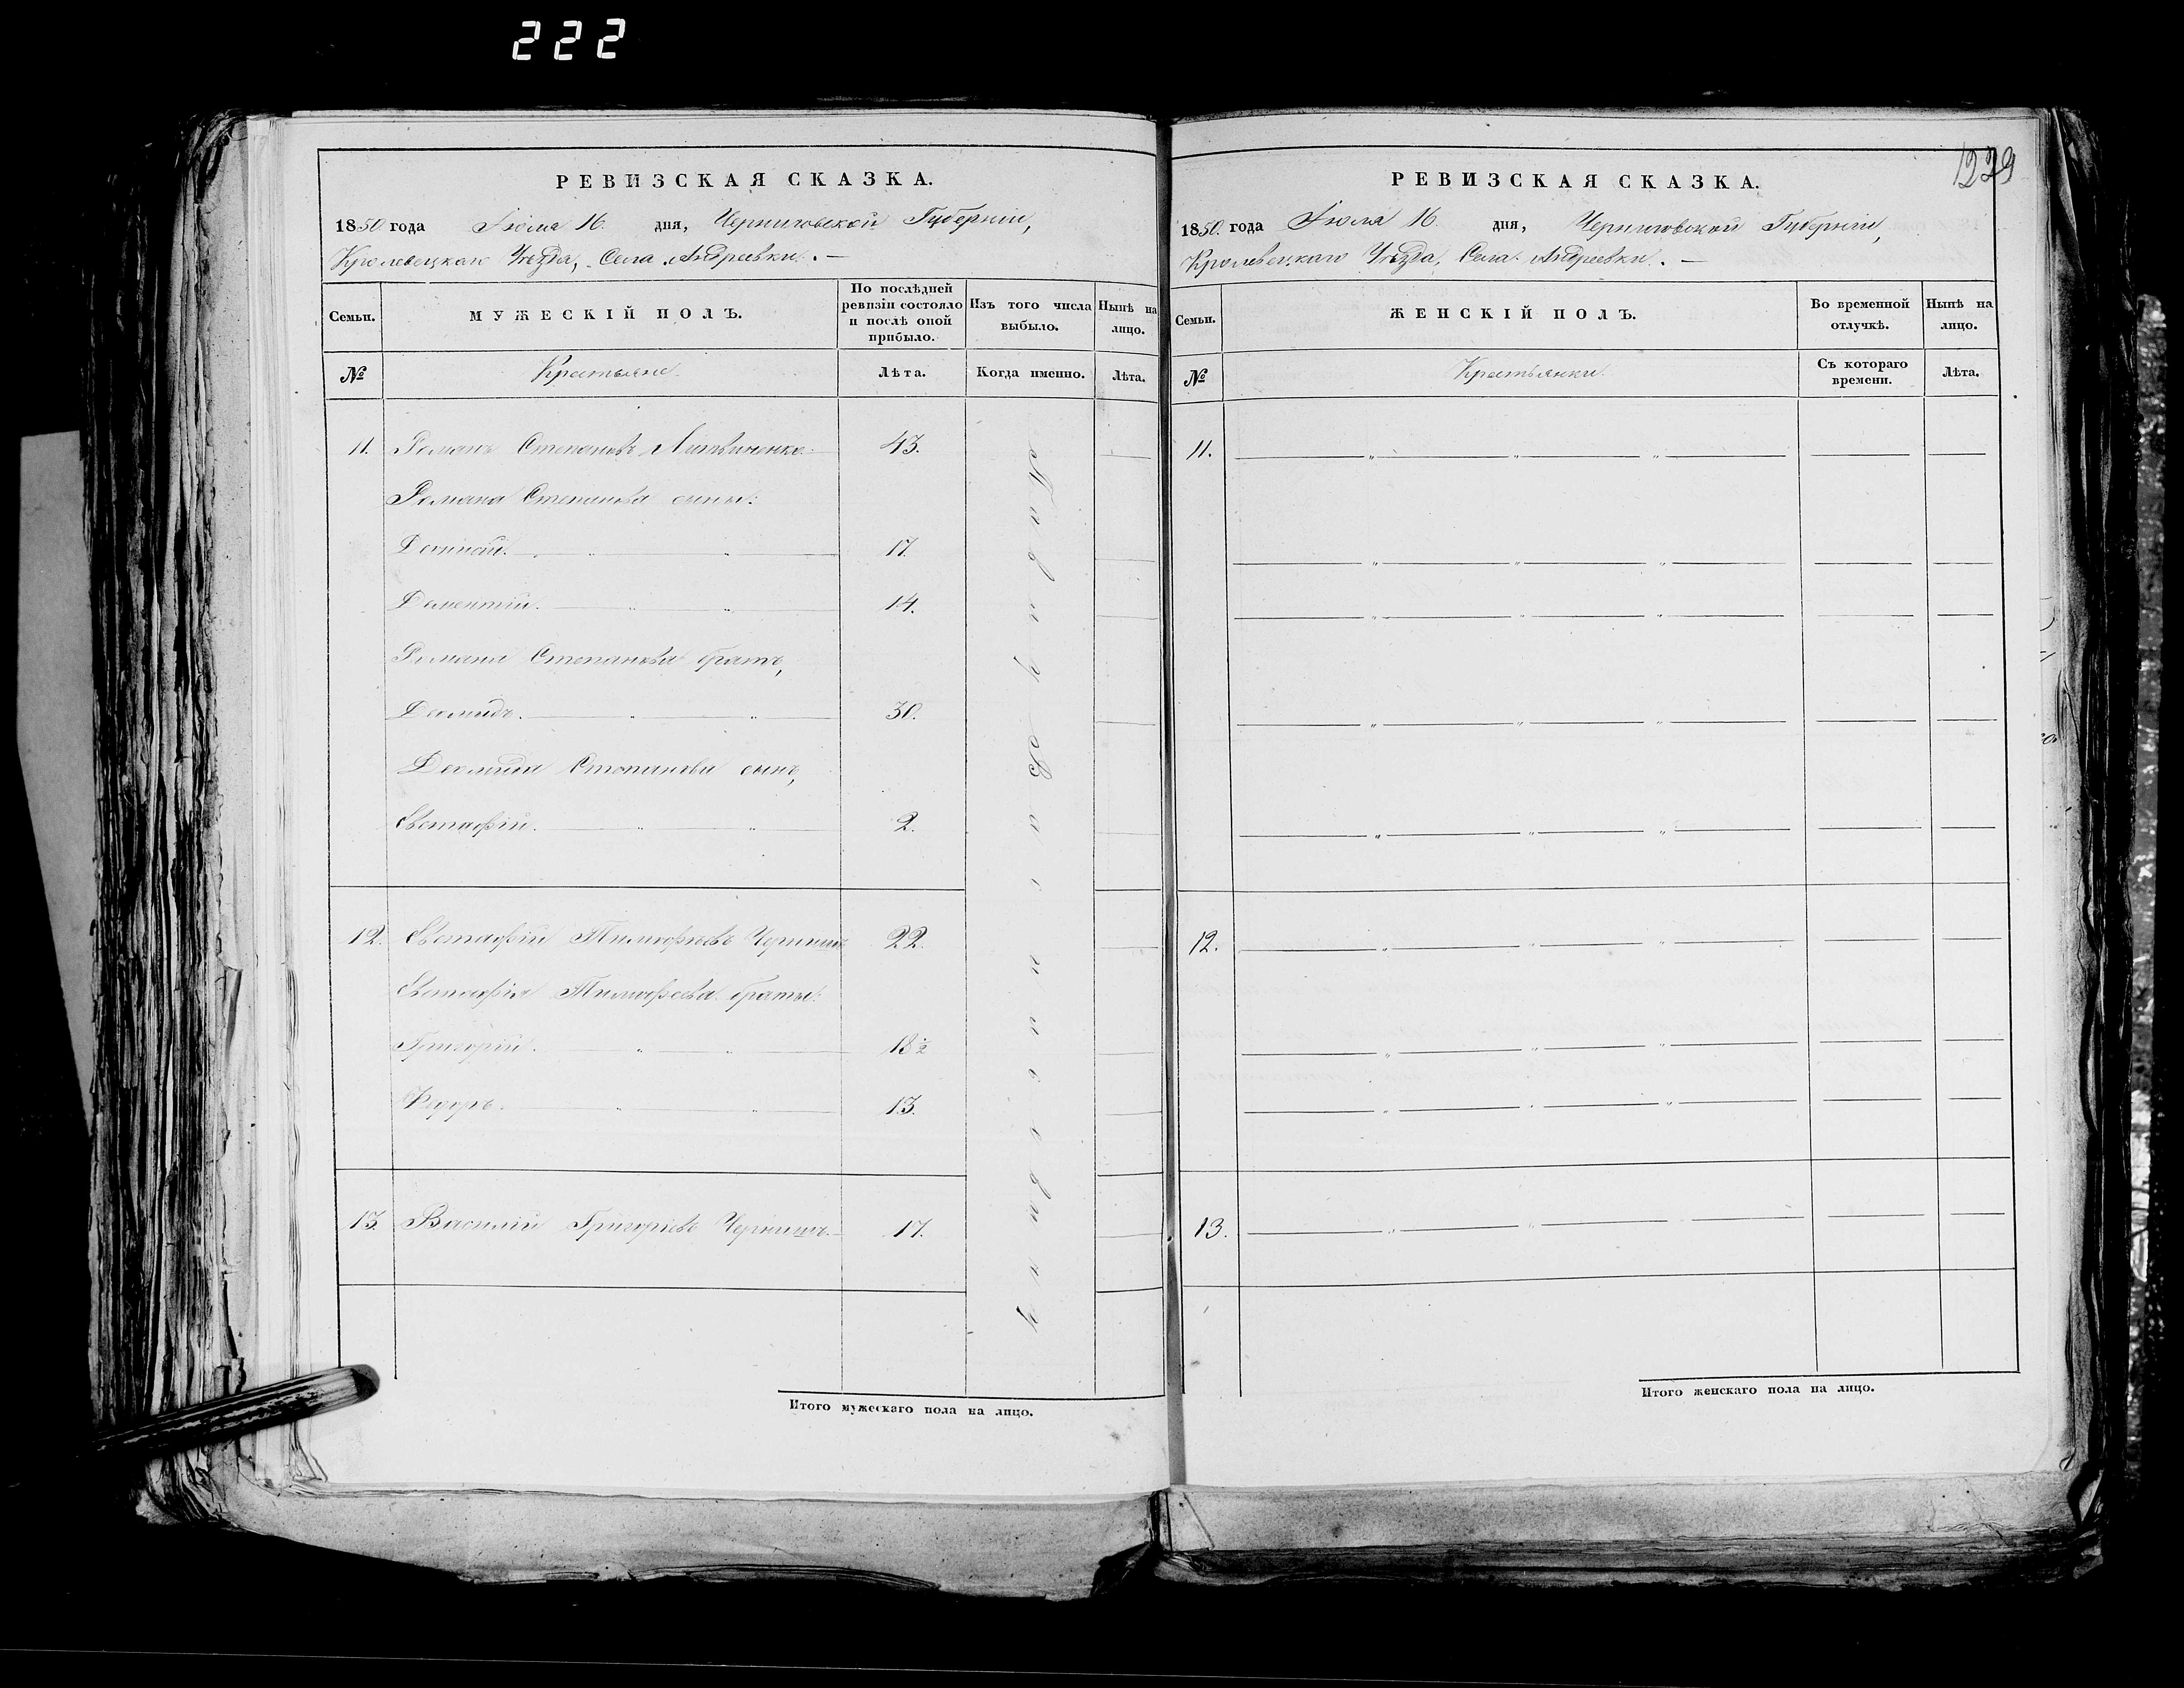 222
РЕВИЗСКАЯ СКАЗКА.
1850 года Іюля 16. дня, Черниговской Губерніи,
Кролевецкаго Уѣзда, Села Андреевки. —
Семьи.
МУЖЕСКІЙ ПОЛЪ.
По послѣдней ревизіи состояло и послѣ оной прибыло.
Изъ того числа выбыло.
Нынѣ на лицо.
№
Крестьяне.
Лѣта.
Когда именно.
Лѣта.
11. Романъ Степановъ Литвиненко 43.
Романа Степанова сыны:
17.
Дементій. 14.
Романа Степанова братъ,
Деомидъ. 30.
Деомида Степанова сынъ,
Евстафій. 2.
12. Евстафій Тимофеевъ 22.
Евстафія Тимофеева браты:
Григорій. 18½
Федоръ. 13.
13. Василій Григорьевъ 17.
Итого мужескаго пола на лицо.
1229
РЕВИЗСКАЯ СКАЗКА.
1850 года Іюля 16. дня, Черниговской Губерніи,
Кролевецкаго Уѣзда, Села Андреевки. —
Семьи.
ЖЕНСКІЙ ПОЛЪ.
Во временной отлучкѣ.
Нынѣ на лицо.
№
Крестьянки.
Съ котораго времени.
Лѣта.
11.
12.
13.
Итого женскаго пола на лицо.